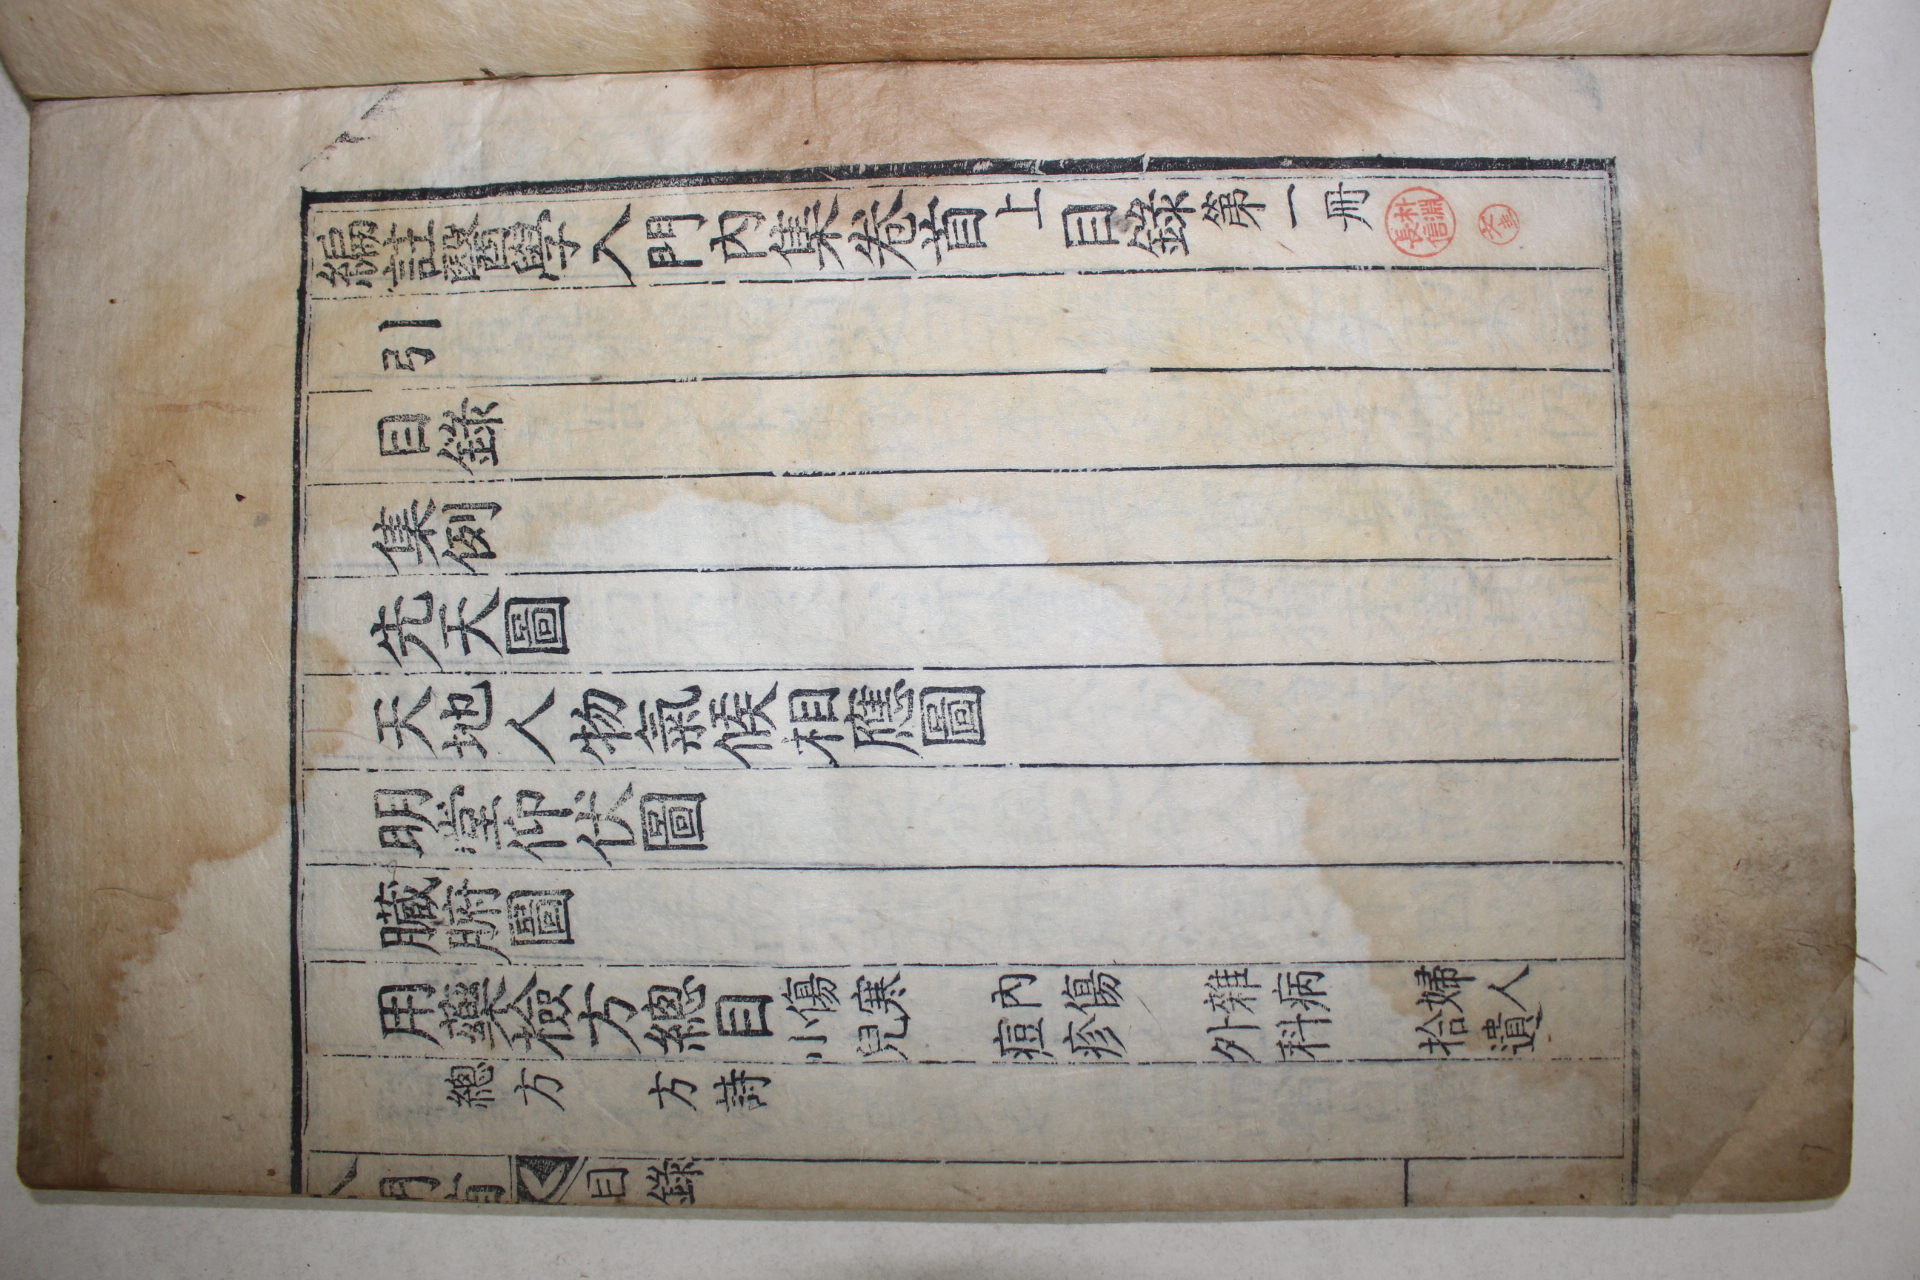 編註醫學入門內集卷首上目錄第一冊
朴淵
長信
引
目錄
集例
先天圖
天地人物氣候相應圖
明堂仰伏圖
臟腑圖
用藥檢方總目
傷寒 內傷 雜病 婦人
小兒 痘疹 外科 拾遺
總方 方詩
入門首 目錄